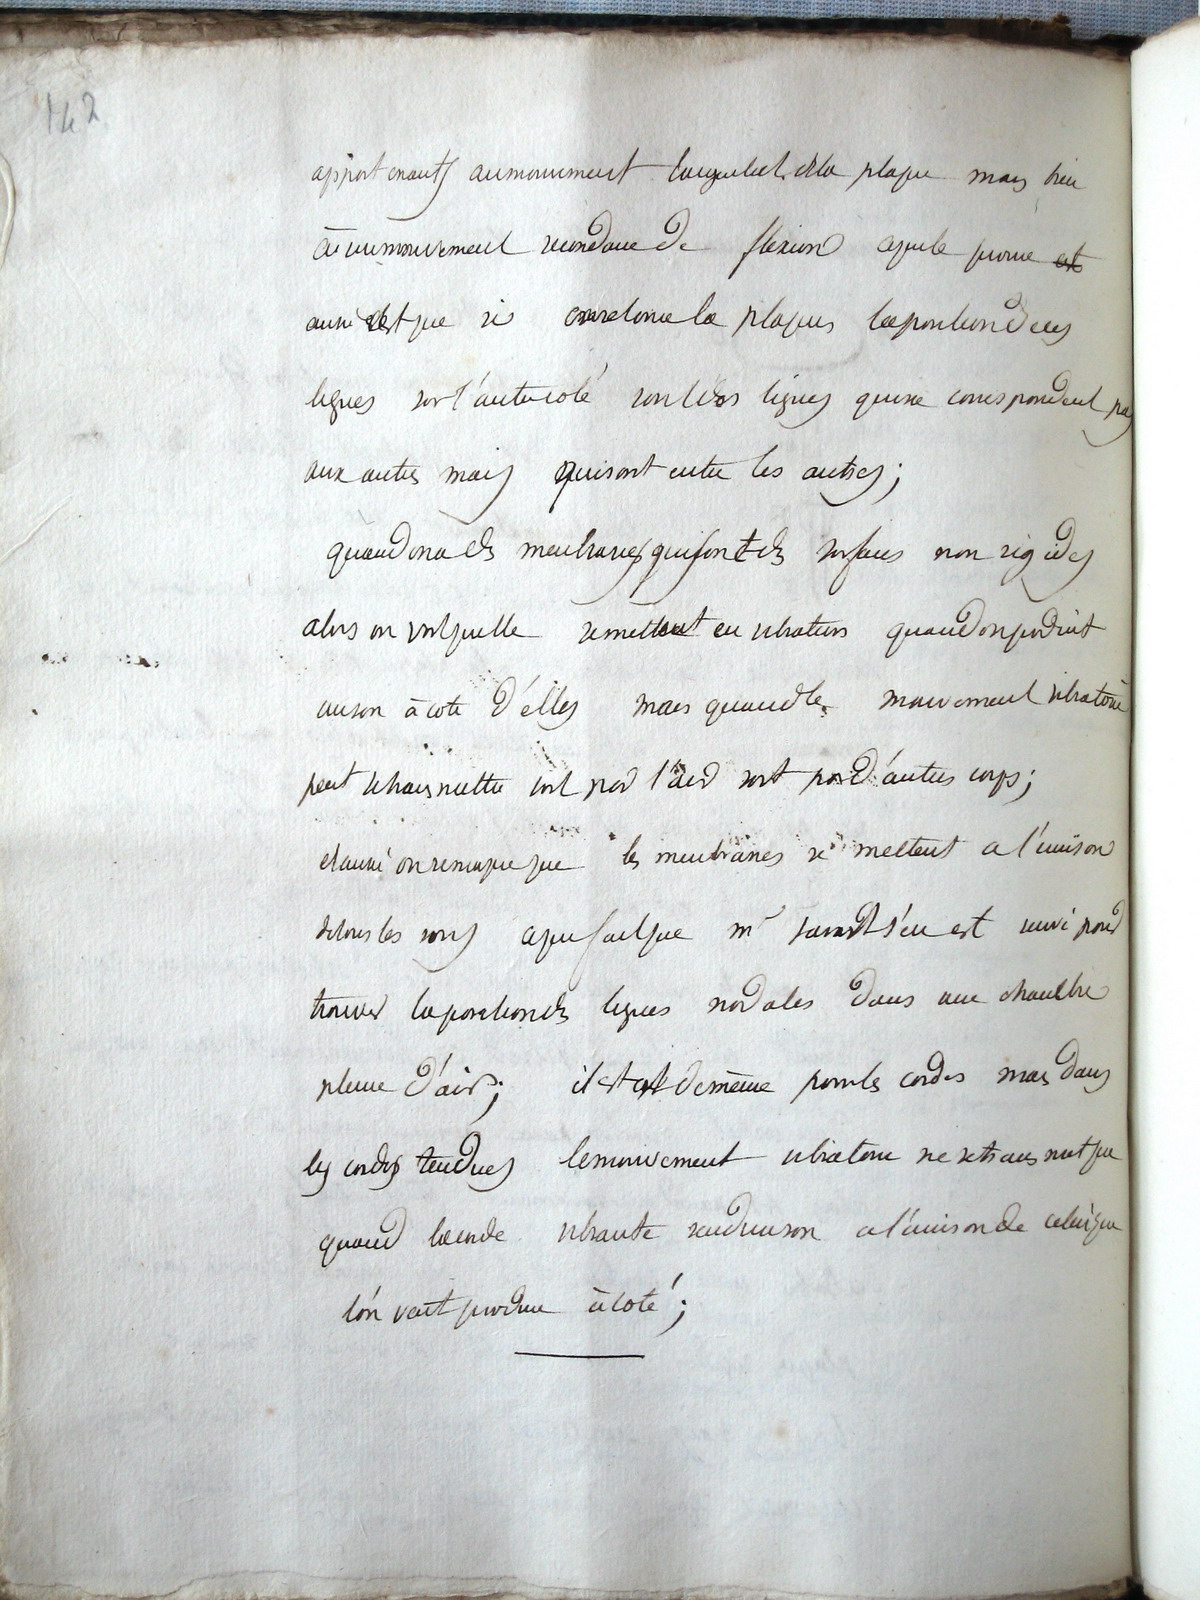 142
appartenants au mouvement tangentiel de la plaque mais bien
à un mouvement secondaire de flexion ce qui le prouve est
aussi c'est que si on retourne la plaque la position de ces
lignes sur l'autre coté sont des lignes qui ne correspondent pas
aux autres mais qui sont entre les autres;
quand on a des membranes qui sont des surfaces non rigides
alors on voit quelle se mettent en vibrations quand on produit
un son à coté d'elles mais quand le mouvement vibratoire
peut se transmettre soit par l'air soit par d'autres corps;
et aussi on remarque que les membranes se mettent a l'unison
de tous les sons ce qui fait que mr savart s'en est servi pour
trouver la position des lignes nodales dans une chambre
pleine d'air; il est de même pour les cordes mais dans
les cordes tendues le mouvement vibratoire ne se transmet que
quand la corde vibrante rend un son a l'unison de celui que
l'on veut produire à coté;